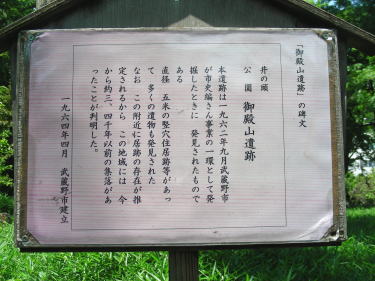 「御殿山遺跡」の碑文
井の頭
公園 御殿山遺跡
本遺跡は一九六二年九月武蔵野市
が市史編さん事業の一環として発
掘したときに 発見されたもので
ある
直径 五米の竪穴住居跡等があっ
て、多くの遺物も発見された
なお この附近に居跡の存在が推
定されるから この地域には 今
から約三、四千年以前の集落があ
ったことが判明した。
一九六四年四月 武蔵野市建立